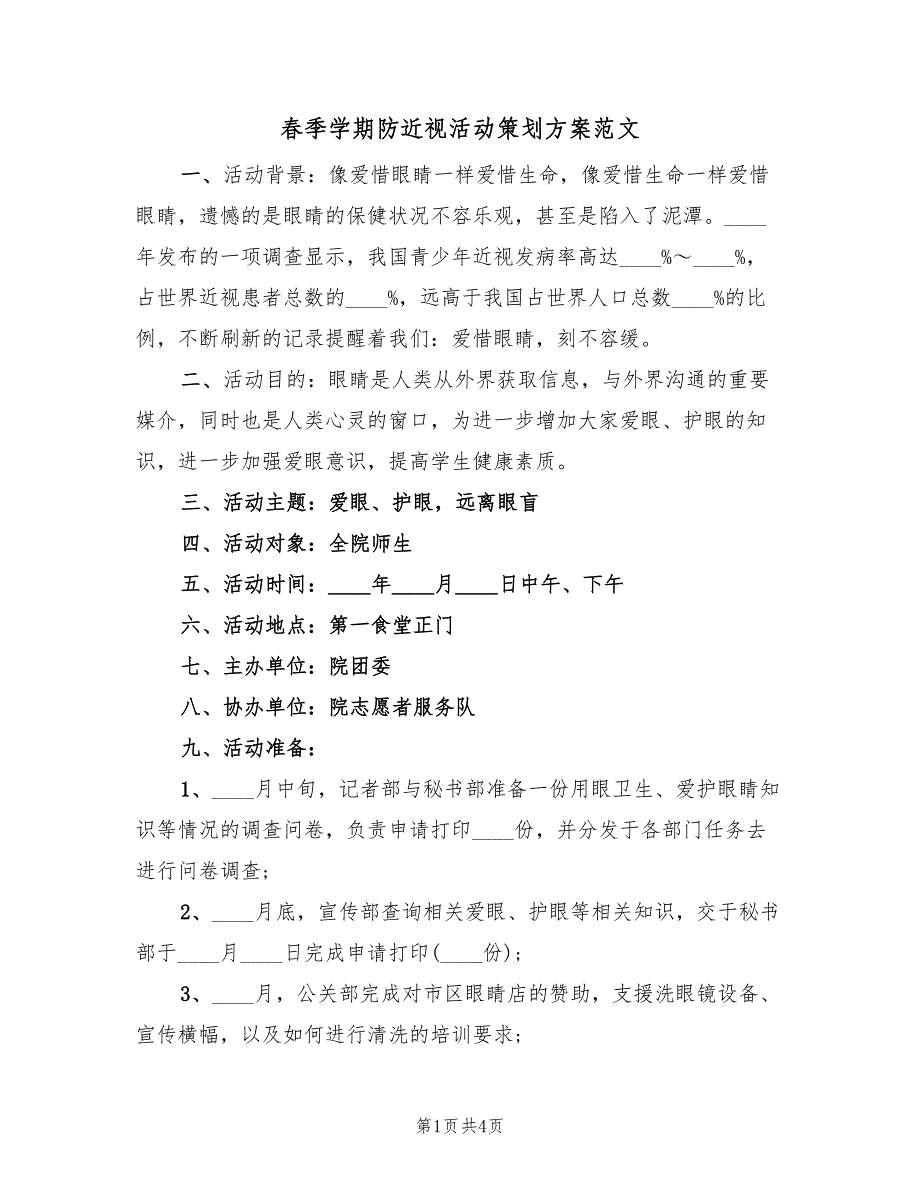 春季学期防近视活动策划方案范文
一、活动背景：像爱惜眼睛一样爱惜生命，像爱惜生命一样爱惜
眼睛，遗憾的是眼睛的保健状况不容乐观，甚至是陷入了泥潭。____
年发布的一项调查显示，我国青少年近视发病率高达____%～____%，
占世界近视患者总数的____%，远高于我国占世界人口总数____%的比
例，不断刷新的记录提醒着我们：爱惜眼睛，刻不容缓。
二、活动目的：眼睛是人类从外界获取信息，与外界沟通的重要
媒介，同时也是人类心灵的窗口，为进一步增加大家爱眼、护眼的知
识，进一步加强爱眼意识，提高学生健康素质。
三、活动主题：爱眼、护眼，远离眼盲
四、活动对象：全院师生
五、活动时间：____年____月____日中午、下午
六、活动地点：第一食堂正门
七、主办单位：院团委
八、协办单位：院志愿者服务队
九、活动准备：
1、____月中旬，记者部与秘书部准备一份用眼卫生、爱护眼睛知
识等情况的调查问卷，负责申请打印____份，并分发于各部门任务去
进行问卷调查;
2、____月底，宣传部查询相关爱眼、护眼等相关知识，交于秘书
部于____月____日完成申请打印(____份);
3、____月，公关部完成对市区眼睛店的赞助，支援洗眼镜设备、
宣传横幅，以及如何进行清洗的培训要求;
第1页共4页